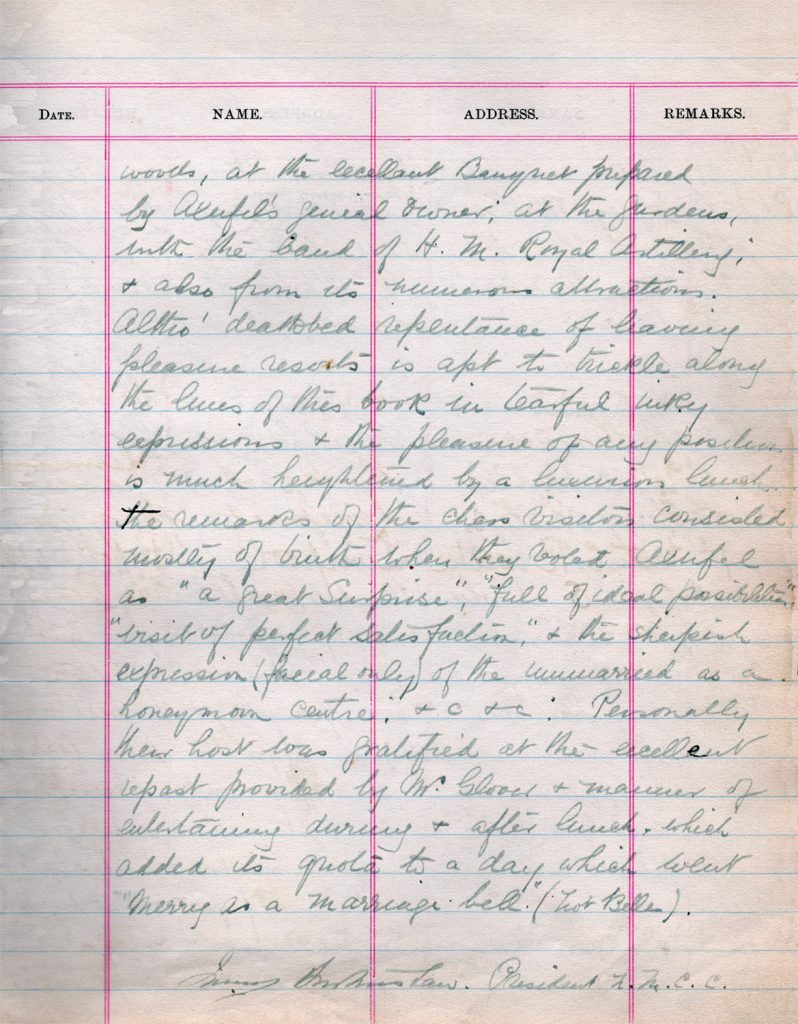 DATE. NAME. ADDRESS. REMARKS.
woods, at the excellant Banquet prepared
by Axenfel's genial owner; at the gardens,
with the band of H. M. Royal Artillery;
& also from its numerous attractions.
Altho' deathbed repentance of leaving
pleasure resorts is apt to trickle along
the lines of this book in tearful inky
expressions & the pleasure of any position
is much heightened by a luxurious lunch.
The remarks of the chess visitors consisted
mostly of truth when they voted Axenfel
as "a great Surprise", "full of ideal possibilities",
"visit of perfect satisfaction," & the sheepish
expression (facial only) of the unmarried as a
honeymoon centre; &c &c. Personally
their host was gratified at the excellent
repast provided by Mr. Glover & manner of
entertaining during & after lunch. which
added its quota to a day which went
"Merry as a marriage bell." (not Belle).
President N. M. C. C.